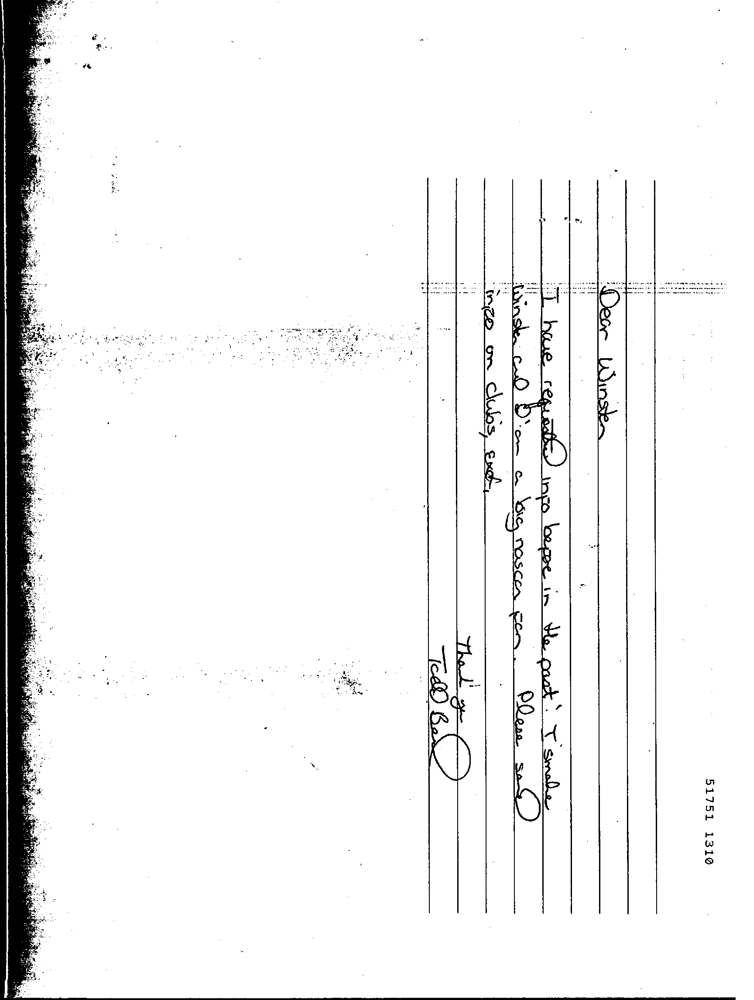 Dear Winston
I have requested info before in the past! I smoke
Winston and I'm a big nascar fan. Please send
info on clubs, ect.
Thank you
Todd
51751 1310